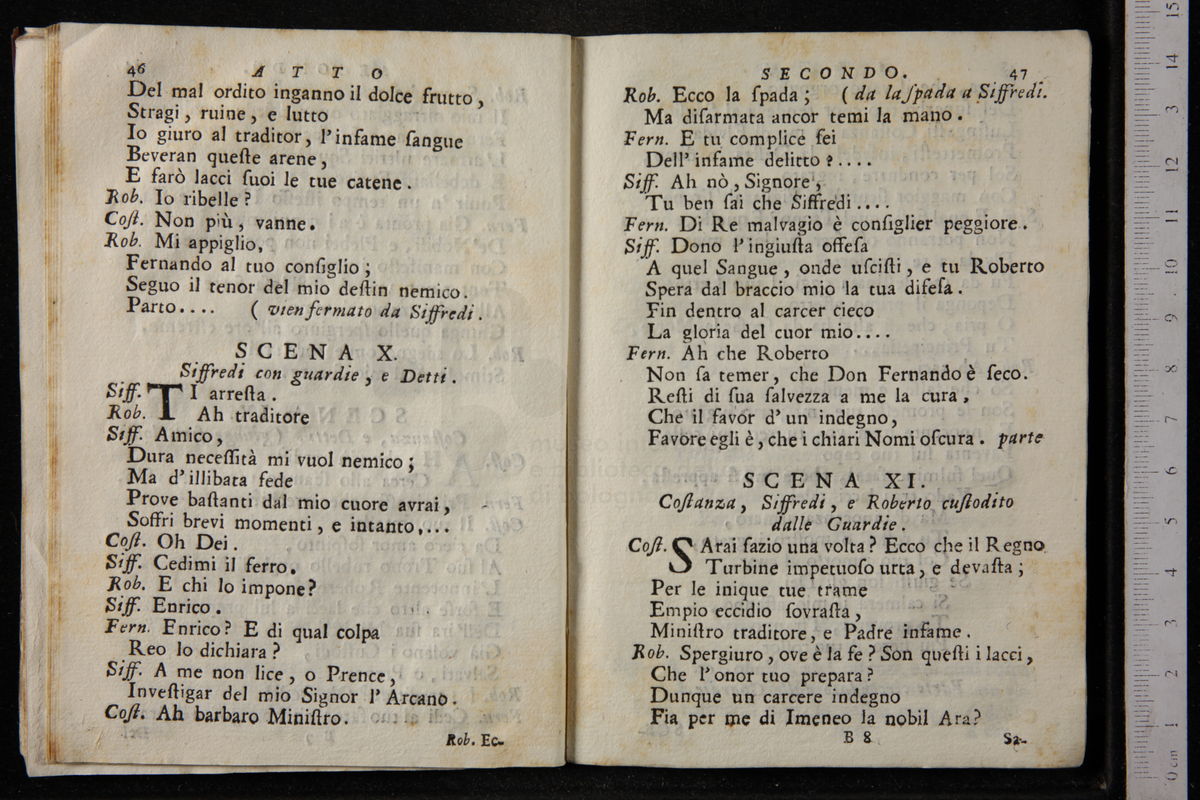 46 ATTO
Del mal ordito inganno il dolce frutto,
Stragi, ruine, e lutto
Io giuro al traditor, l'infame ſangue
Beveran queſte arene,
E farò lacci ſuoi le tue catene.
Rob. Io ribelle?
Coſt. Non più, vanne.
Rob. Mi appiglio,
Fernando al tuo conſiglio;
Seguo il tenor del mio deſtin nemico.
Parto.... ( vien fermato da Siffredi.
SCENA X.
Siffredi con guardie, e Detti.
Siff. TI arreſta.
Rob. Ah traditore
Siff. Amico,
Dura neceſſità mi vuol nemico;
Ma d'illibata fede
Prove baſtanti dal mio cuore avrai,
Soffri brevi momenti, e intanto,...
Coſt. Oh Dei.
Siff. Cedimi il ferro.
Rob. E chi lo impone?
Siff. Enrico.
Fern. Enrico? E di qual colpa
Reo lo dichiara?
Siff. A me non lice, o Prence,
Inveſtigar del mio Signor l'Arcano.
Coſt. Ah barbaro Miniſtro.
Rob. Ec-
SECONDO. 47
Rob. Ecco la ſpada; ( da la ſpada a Siffredi.
Ma diſarmata ancor temi la mano.
Fern. E tu complice ſei
Dell'infame delitto?....
Siff. Ah nò, Signore,
Tu ben ſai che Siffredi....
Fern. Di Re malvagio è conſiglier peggiore.
Siff. Dono l'ingiuſta offeſa
A quel Sangue, onde uſciſti, e tu Roberto
Spera dal braccio mio la tua difeſa.
Fin dentro al carcer cieco
La gloria del cuor mio....
Fern. Ah che Roberto
Non ſa temer, che Don Fernando è ſeco.
Reſti di ſua ſalvezza a me la cura,
Che il favor d'un indegno,
Favore egli è, che i chiari Nomi oſcura. parte
SCENA XI.
Coſtanza, Siffredi, e Roberto cuſtodito
dalle Guardie.
Coſt. SArai ſazio una volta? Ecco che il Regno
Turbine impetuoſo urta, e devaſta;
Per le inique tue trame
Empio eccidio ſovraſta,
Miniſtro traditore, e Padre infame.
Rob. Spergiuro, ove è la fe? Son queſti i lacci,
Che l'onor tuo prepara?
Dunque un carcere indegno
Fia per me di Imeneo la nobil Ara?
B 8 Sa-
0 cm 1 2 3 4 5 6 7 8 9 10 11 12 13 14 15